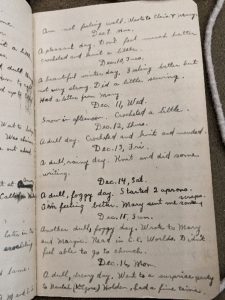 Am not feeling well. Wrote to Clair & Mary
Dec. 9, Mon.
A pleasant day. Don't feel much better.
Crocheted and knit a little.
Dec. 10, Tues.
A beautiful winter day. Feeling better but
not very strong. Did a little sewing.
Had a letter from Mary.
Dec. 11, Wed.
Snow in afternoon. Crocheted a little.
Dec. 12, Thurs.
A dull day. Crocheted and knit and mended.
Dec. 13, Fri.
A dull, rainy day. Knit and did some
writing.
Dec. 14, Sat.
A dull, foggy day. Started 2 aprons.
Am feeling better. Mary sent me some
Dec. 15, Sun.
Another dull, foggy day. Wrote to Mary
and Margie. Read in World. Do not
feel able to go to church.
Dec. 16, Mon.
A dull, dreary day. Went to a surprise party
Holden, had a fine time